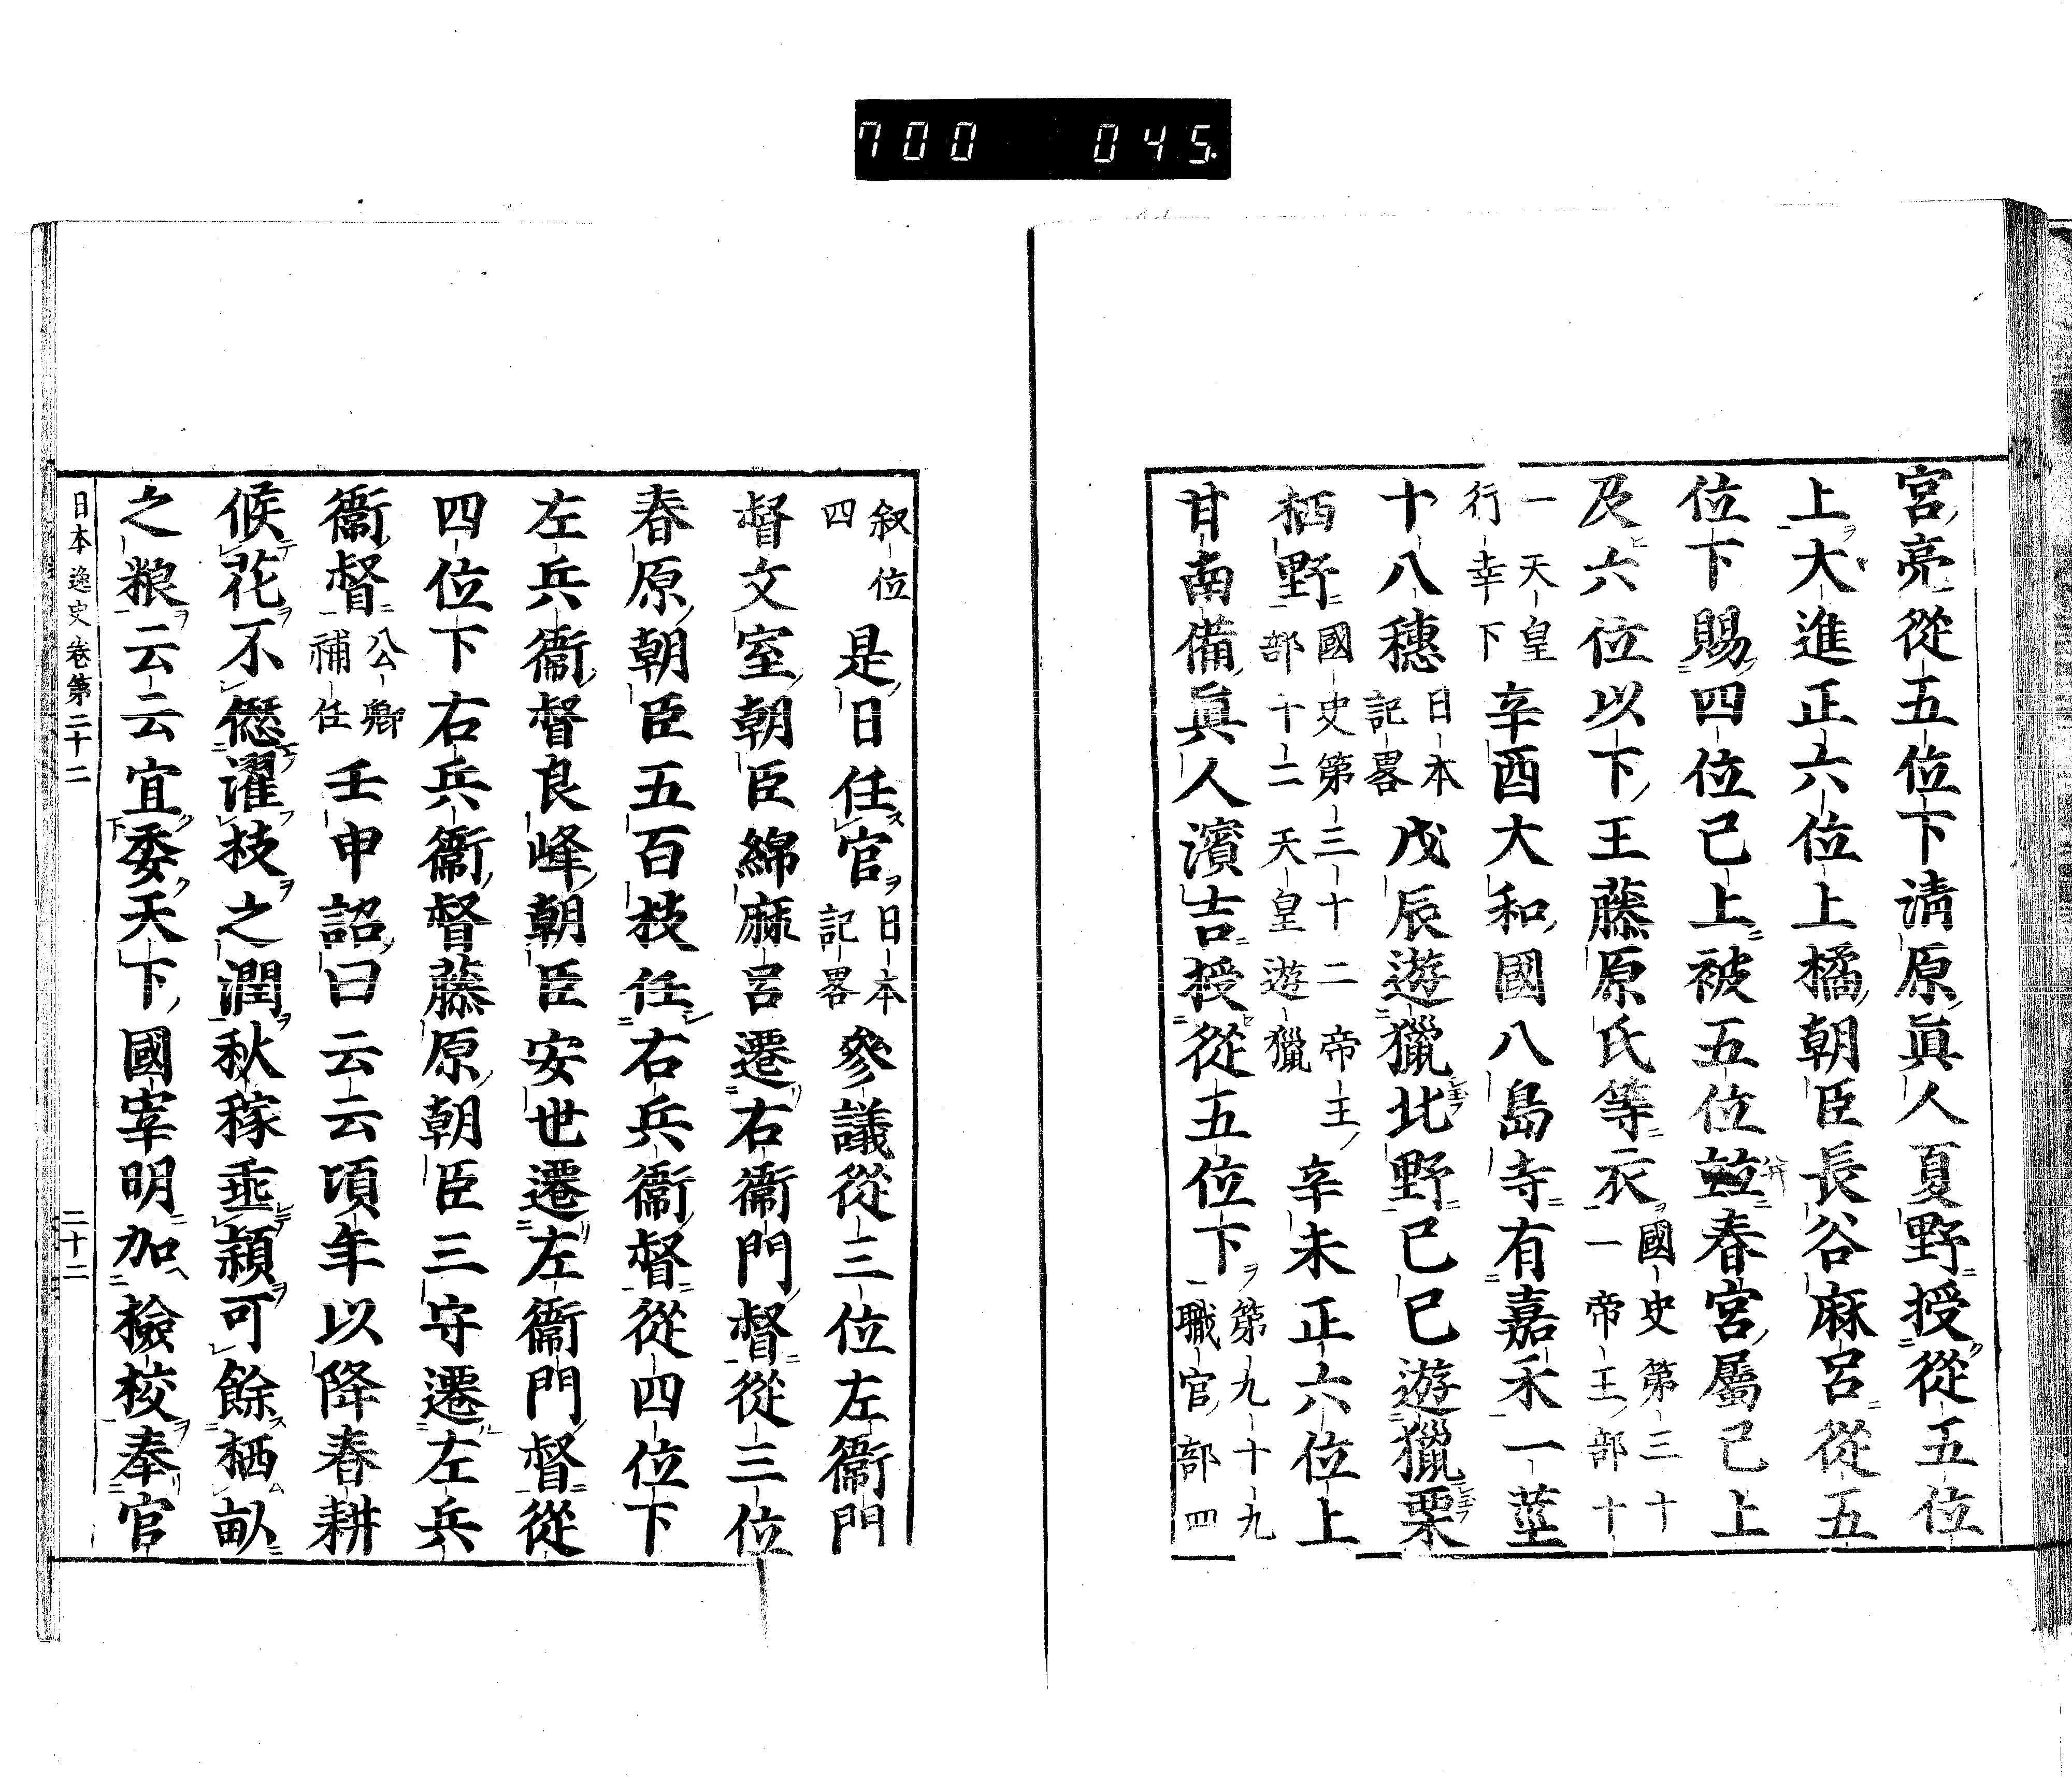 700 045
宮亮從五位下淸原眞人夏野授從五位
上大進正六位上橘朝臣長谷麻呂從五
位下賜四位已上被五位並春宮屬已上
及六位以下王藤原氏等衣國史第三十一帝王部十
一天皇行幸下 辛酉大和國八島寺有嘉禾一莖
十八穗日本記畧 戊辰遊獵北野己巳遊獵栗
栖野國史第三十二帝王部十二天皇遊獵 辛未正六位上
甘南備眞人濱吉授從五位下第九十九職官部四
叙位四 是日任官日本記畧 參議從三位左衞門
督文室朝臣綿麻呂遷右衞門督從三位
春原朝臣五百枝任右兵衞督從四位下
左兵衞督良峰朝臣安世遷左衞門督從
四位下右兵衞督藤原朝臣三守遷左兵
衞督公卿補任 壬申詔曰云云頃年以降春耕
候花不愆濯枝之潤秋稼垂穎可餘栖畝
之粮云云宜委天下國宰明加檢校奉官
日本逸史卷第二十二 二十二